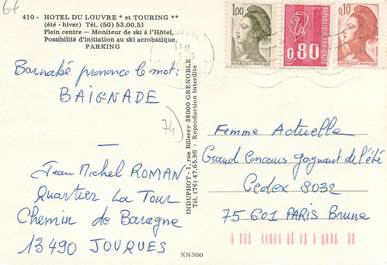 410 - HOTEL DU LOUVRE * et TOURING **
(été - hiver) Tél. (50) 53.00.51
Plein centre — Moniteur de ski à l'Hôtel.
Possibilité d'initiation au ski acrobatique.
PARKING
Barnabé prononce le mot:
BAIGNADE
74
Jean Michel ROMAN
Quartier La Tour
Chemin de Baragne
13490 JOUQUES
INDUPHOT - 1, rue Billerey 38000 GRENOBLE
Tél. (76) 47.65.90 - Reproduction Interdite
1,00
0,80
0,10
Femme Actuelle
Grand Concours gagnant de l'été
Cedex 3032
75601 PARIS Brune
XN300